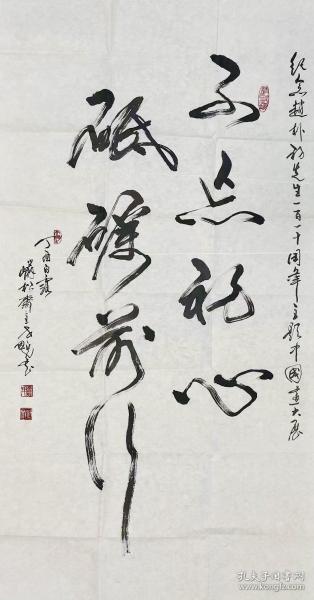 纪念赵朴初先生一百一十周年主题中国画大展
不忘初心
砥砺前行
丁酉白露
孔夫子旧书网
kongfz.com